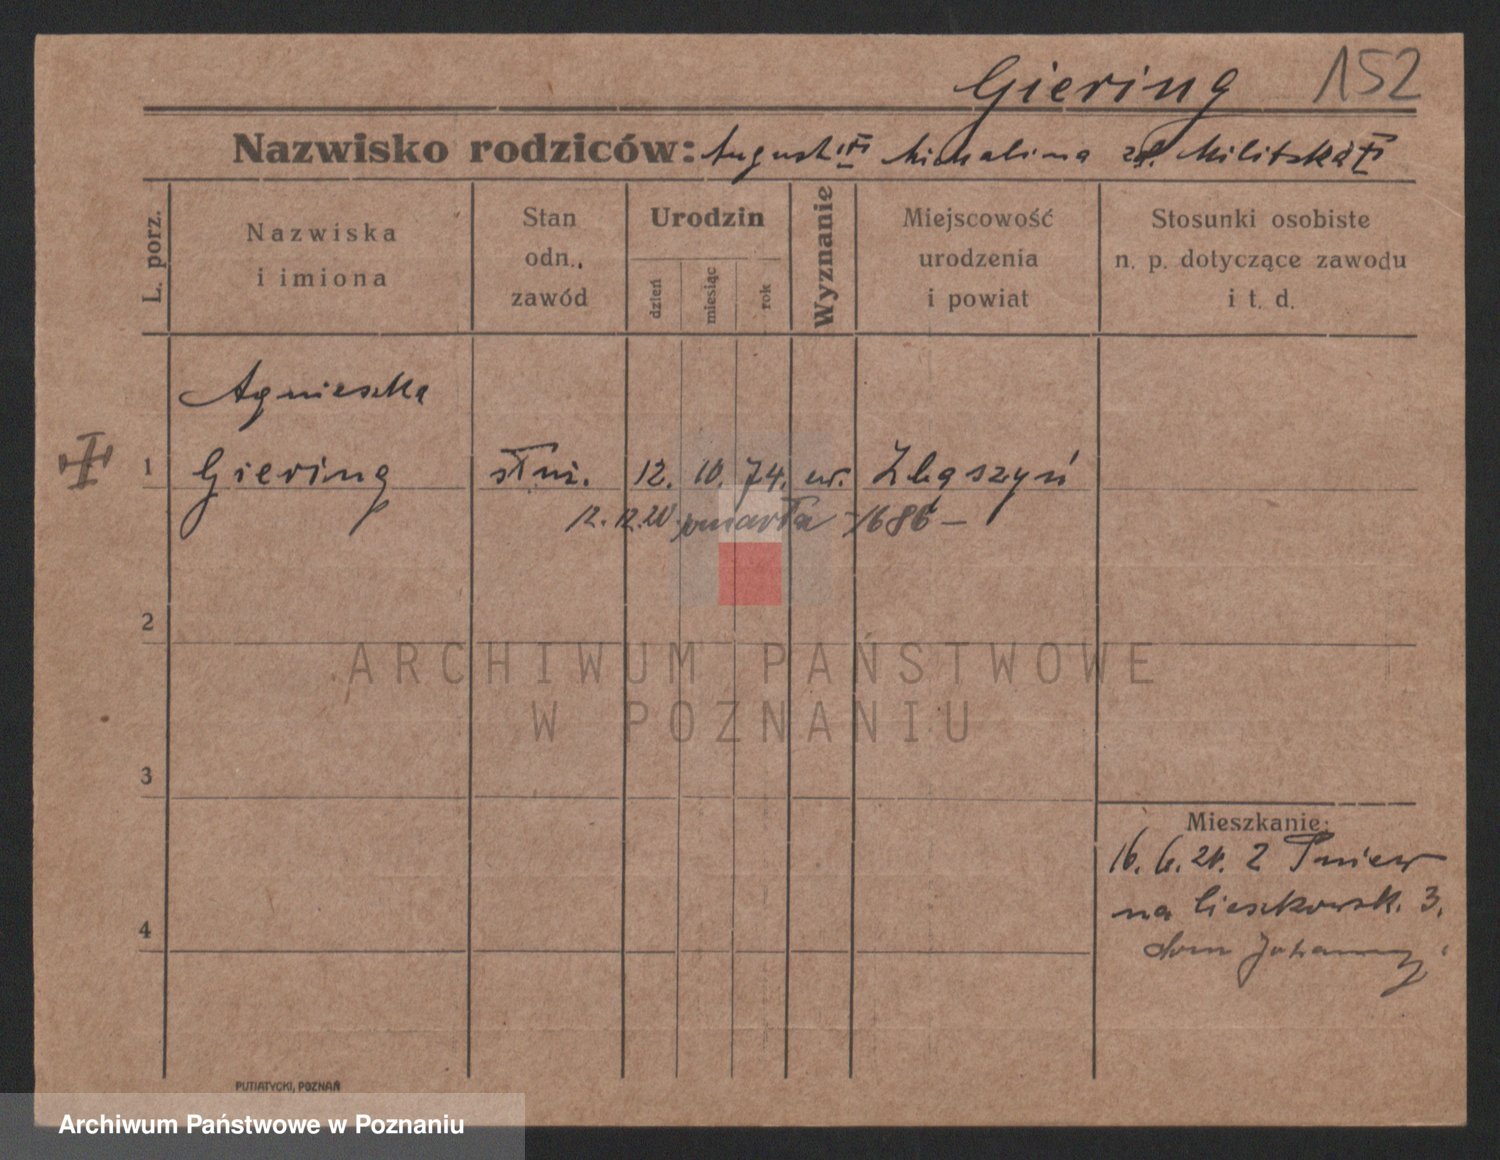 Giering 152
Nazwisko rodziców: August Michalina zd. Militska
L. porz.
Nazwiska
i imiona
Stan
odn.,
zawód
Urodzin
dzień
miesiąc
rok
Wyznanie
Miejscowość
urodzenia
i powiat
Stosunki osobiste
n. p. dotyczące zawodu
i t. d.
Agnieszka
1 Giering służ. 12. 10. 74. Zbąszyń
12. 12.20. umarła -1686-
2
ARCHIWUM PAŃSTWOWE
W POZNANIU
3
Mieszkanie:
16. 6. 20. Z Pniew
na Cieszkowsk. 3.
4
dom
PUTIATYCKI, POZNAŃ
Archiwum Państwowe w Poznaniu